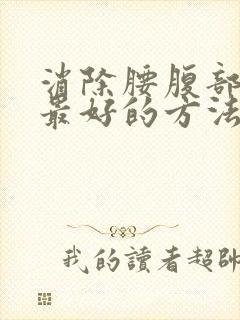 消除腰腹部
最好的方法
我的讀者超帥